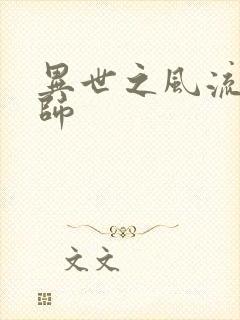 異世之風流
師
文文